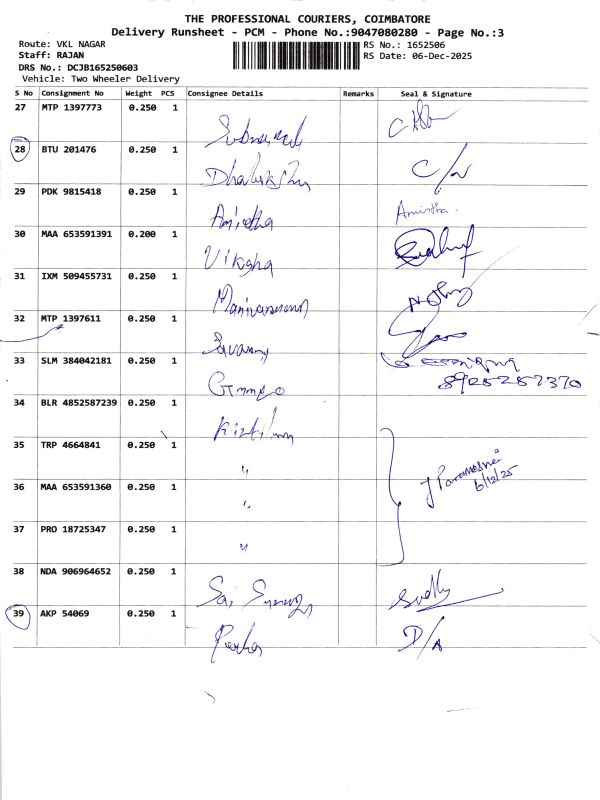 THE PROFESSIONAL COURIERS, COIMBATORE
Delivery Runsheet - PCM - Phone No.:9047080280 - Page No.:3
Route: VKL NAGAR RS No.: 1652506
Staff: RAJAN RS Date: 06-Dec-2025
DRS No.: DCJB165250603
Vehicle: Two Wheeler Delivery
S No Consignment No Weight PCS Consignee Details Remarks Seal & Signature
27 MTP 1397773 0.250 1
28 BTU 201476 0.250 1 C/N
29 PDK 9815418 0.250 1 Amirtha Amirtha.
30 MAA 653591391 0.200 1
31 IXM 509455731 0.250 1
32 MTP 1397611 0.250 1
33 SLM 384042181 0.250 1 8925257370
34 BLR 4852587239 0.250 1
35 TRP 4664841 0.250 1 "
36 MAA 653591360 0.250 1 " 6/12/25
37 PRO 18725347 0.250 1 "
38 NDA 906964652 0.250 1 Sai
39 AKP 54069 0.250 1 D/A